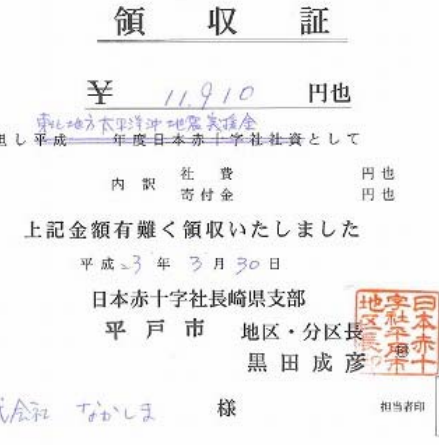 領収証
¥ 11,910 円也
東北地方太平洋沖地震義援金
但し平成 年度日本赤十字社社資として
内訳 社費 円也
寄付金 円也
上記金額有難く領収いたしました
平成23年3月30日
日本赤十字社長崎県支部
平戸市 地区・分区長
黒田成彦 印
日本赤十字社平戸市地区長
式会社 なかしま 様
担当者印